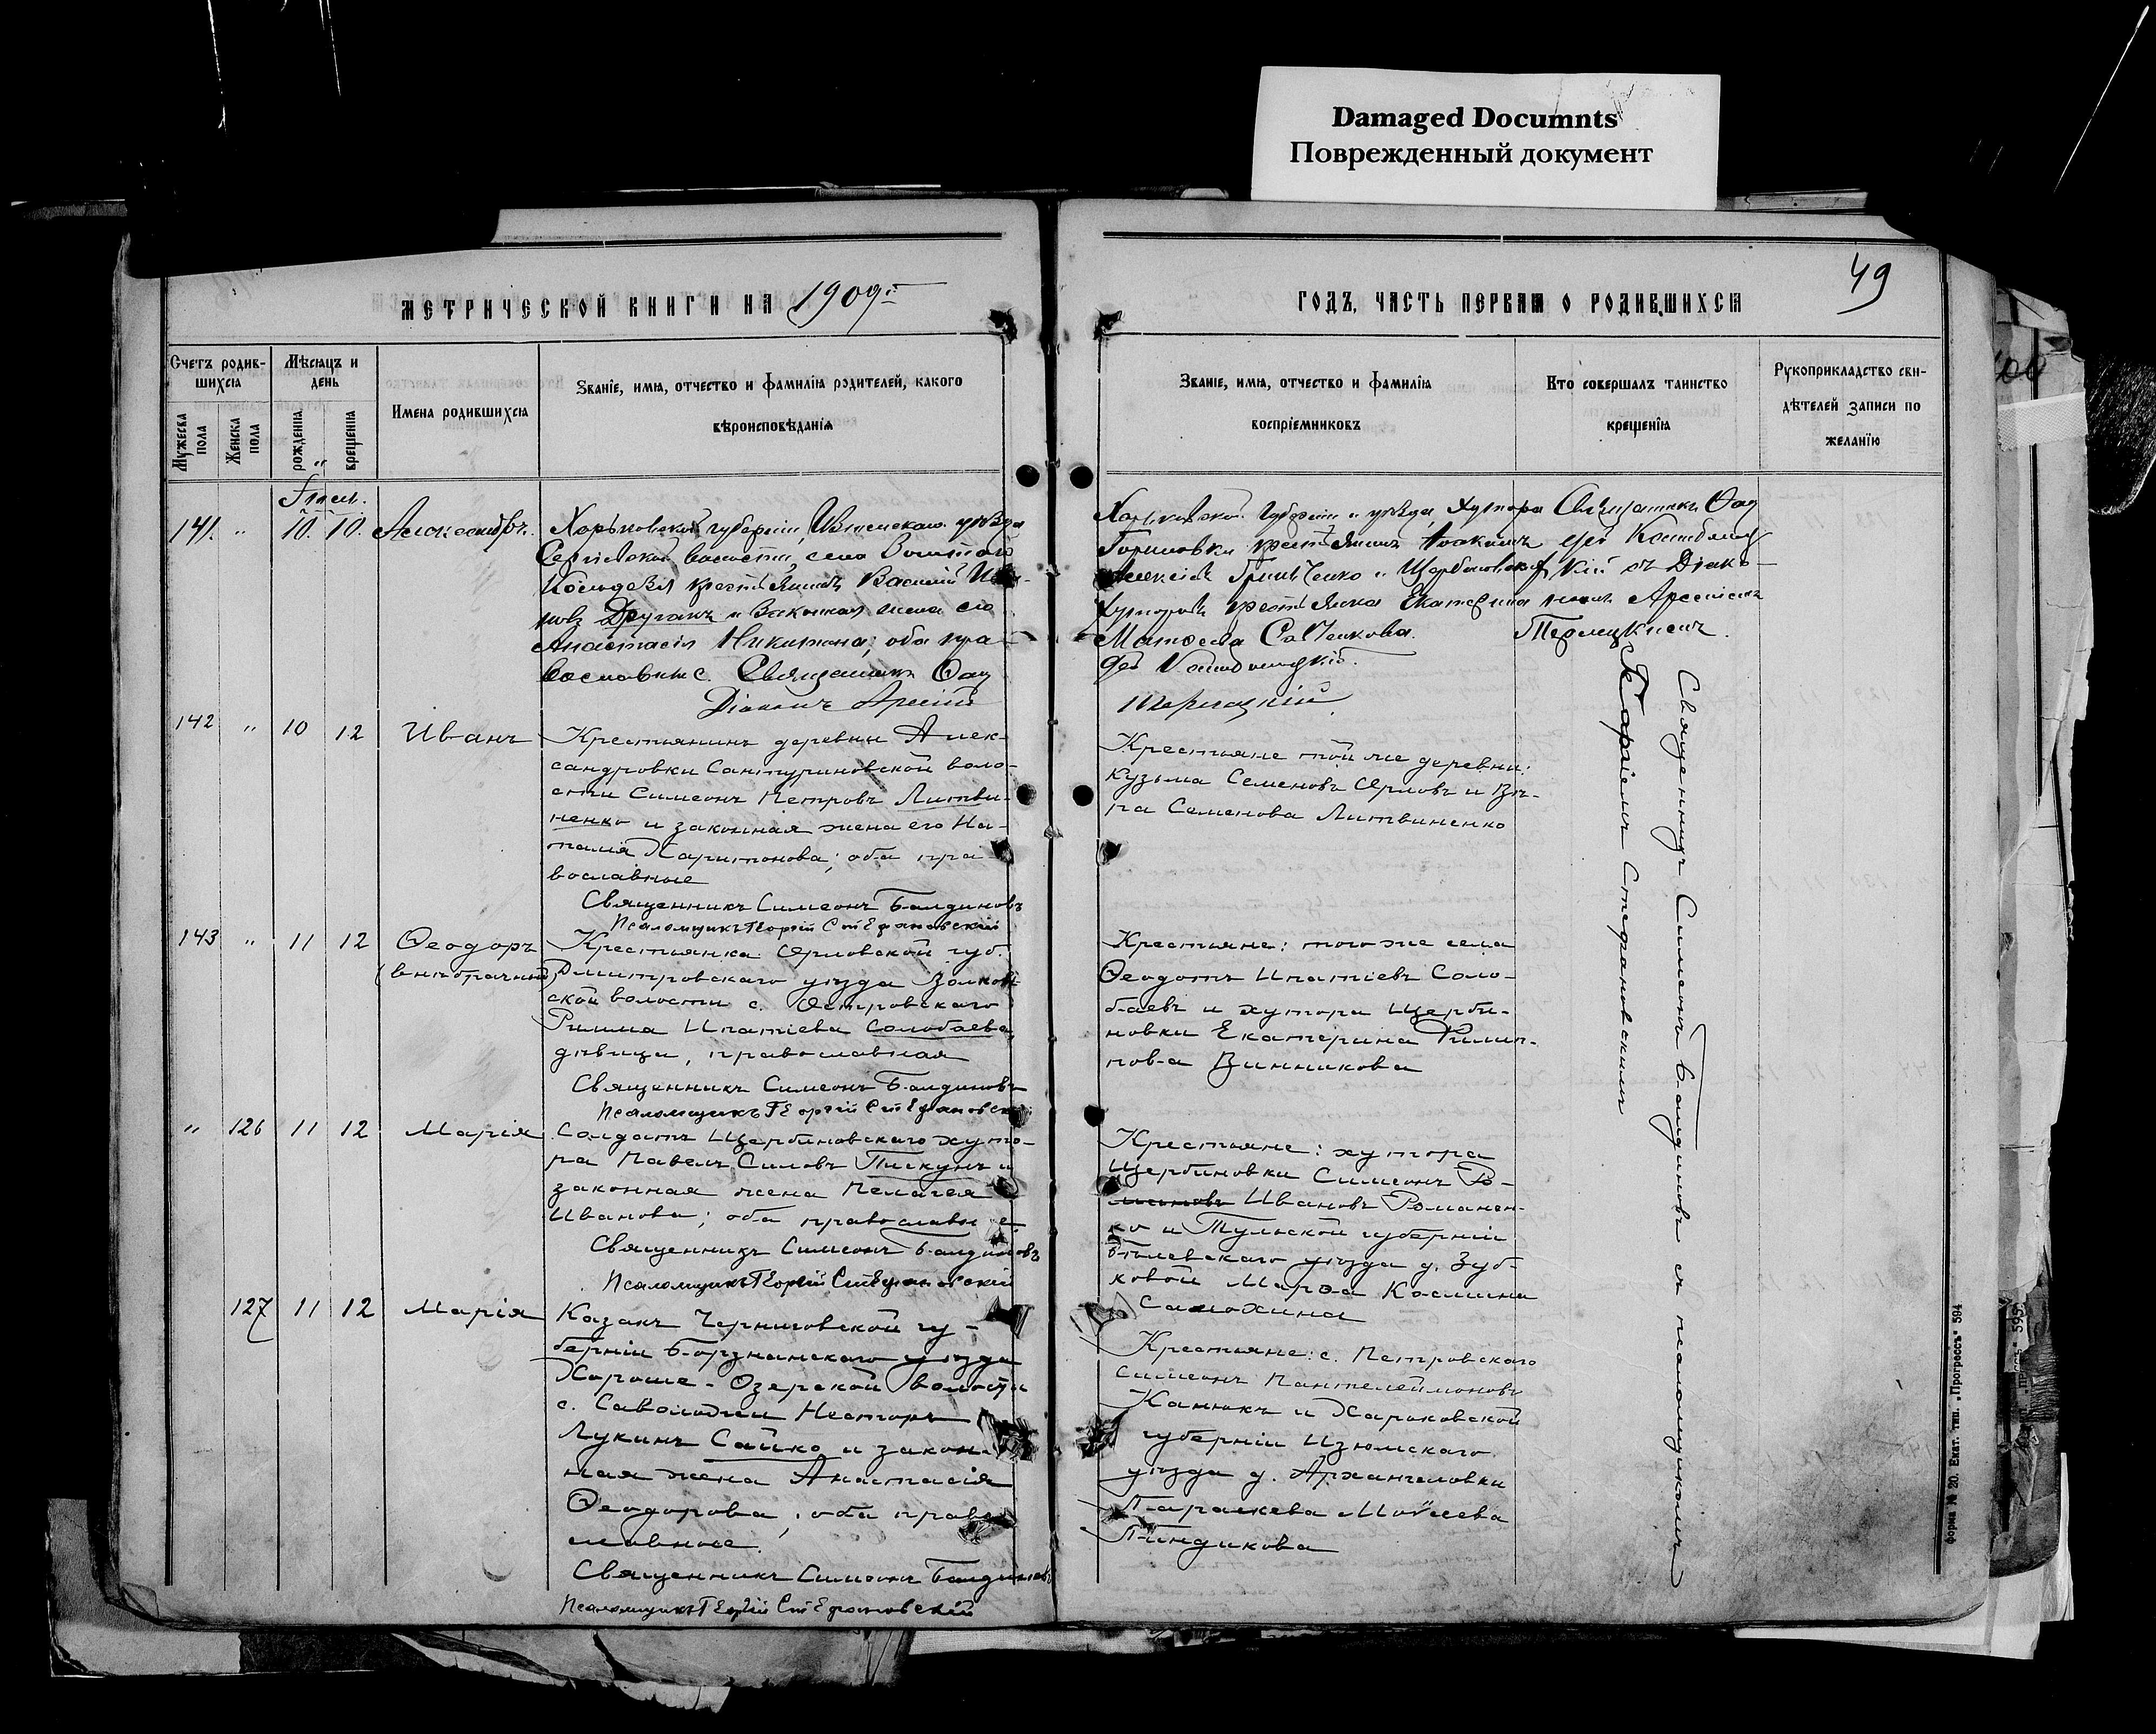 Damaged Documnts
Поврежденный документ
49
МЕТРИЧЕСКОЙ КНИГИ НА 1909 г.
ГОДЪ, ЧАСТЬ ПЕРВАЯ О РОДИВШИХСЯ
Счетъ родив-
шихся
Мужеска пола
Женска пола
Мѣсяцъ и
день
рожденія
крещенія
Имена родившихся
Званіе, имя, отчество и фамилія родителей, какого
вѣроисповѣданія
Званіе, имя, отчество и фамилія
воспріемниковъ
Кто совершалъ таинство
крещенія
Рукоприкладство сви-
дѣтелей записи по
желанію
141. " 10. 10. Александръ.
Харьковской губерніи, Изюмскаго уѣзда
волости, села
крестьянинъ Василій
Друганъ и законная жена его
Анастасія Никитина; оба пра-
вославные. Священникъ Ѳад
Діаконъ Арсеній
Харьковской губерніи и уѣзда, хутора
крестьянинъ
крестьянка Екатерина
Матѳеева
Священникъ Ѳад
съ Діако-
номъ Арсеніемъ
142 " 10 12 Иванъ
Крестьянинъ деревни Алек-
сандровки Сантуриновской воло-
сти Симеонъ Петровъ Литви-
ненко и законная жена его На-
талія Харитонова; оба пра-
вославные
Священникъ Симеонъ Балдиновъ
Псаломщикъ Георгій Стефановскій
Крестьяне той же деревни:
Кузьма Семеновъ Орловъ и Вѣ-
ра Семенова Литвиненко
143 " 11 12 Ѳеодоръ
(внѣбрачный)
Крестьянка Орловской губ.
Дмитровскаго уѣзда
ской волости с. Островскаго
Римма Ипатіева Солобаева,
дѣвица, православная
Священникъ Симеонъ Балдиновъ
Псаломщикъ Георгій Стефановскій
Крестьяне: того же села
Ѳеодотъ Ипатіевъ Соло-
баевъ и хутора Щерби-
новки Екатерина Филип-
пова Винникова
" 126 11 12 Марія
Солдатъ Щербиновскаго хуто-
ра Павелъ Силовъ Пискунъ и
законная жена Пелагея
Иванова; оба православные
Священникъ Симеонъ Балдиновъ
Псаломщикъ Георгій Стефановскій
Крестьяне: хутора
Щербиновки Симеонъ Ро-
Ивановъ Романен-
ко и Тульской губерніи
Бѣлевскаго уѣзда д. Зуб-
ковой Марѳа Космина
Самохина
127 11 12 Марія
Казакъ Черниговской гу-
берніи Борзнанскаго уѣзда
Хороше-Озерской волости
с. Несторъ
Лукинъ Сайко и закон-
ная жена Анастасія
Ѳеодорова; оба право-
славные.
Священникъ Симеонъ Балдиновъ
Псаломщикъ Георгій Стефановскій
Крестьяне: с. Петровскаго
Симеонъ Пантелеймоновъ
Канюкъ и Харьковской
губерніи Изюмскаго
уѣзда д. Архангеловки
Параскева Мойсеева
Пиндикова
Священникъ Симеонъ Балдиновъ съ псаломщикомъ
Георгіемъ Стефановскимъ
Форма № 20. Екат. тип. „Прогрессъ“ 594
595